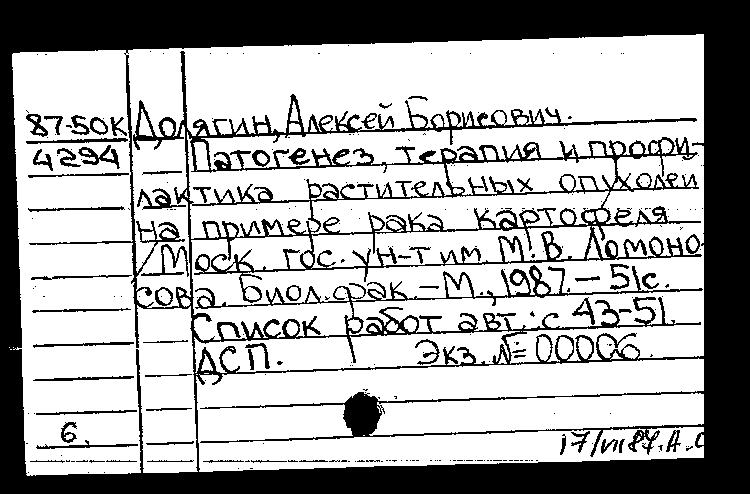 87-50К Долягин, Алексей Борисович.
4294 Патогенез, терапия и профи-
лактика растительных опухолей
на примере рака картофеля
/ Моск. гос. ун-т им. М. В. Ломоно-
сова. Биол. фак. – М., 1987. – 51 с.
Список работ авт.: с 43-51.
ДСП. Экз. № 00006.
6.
17/VII 87. А.